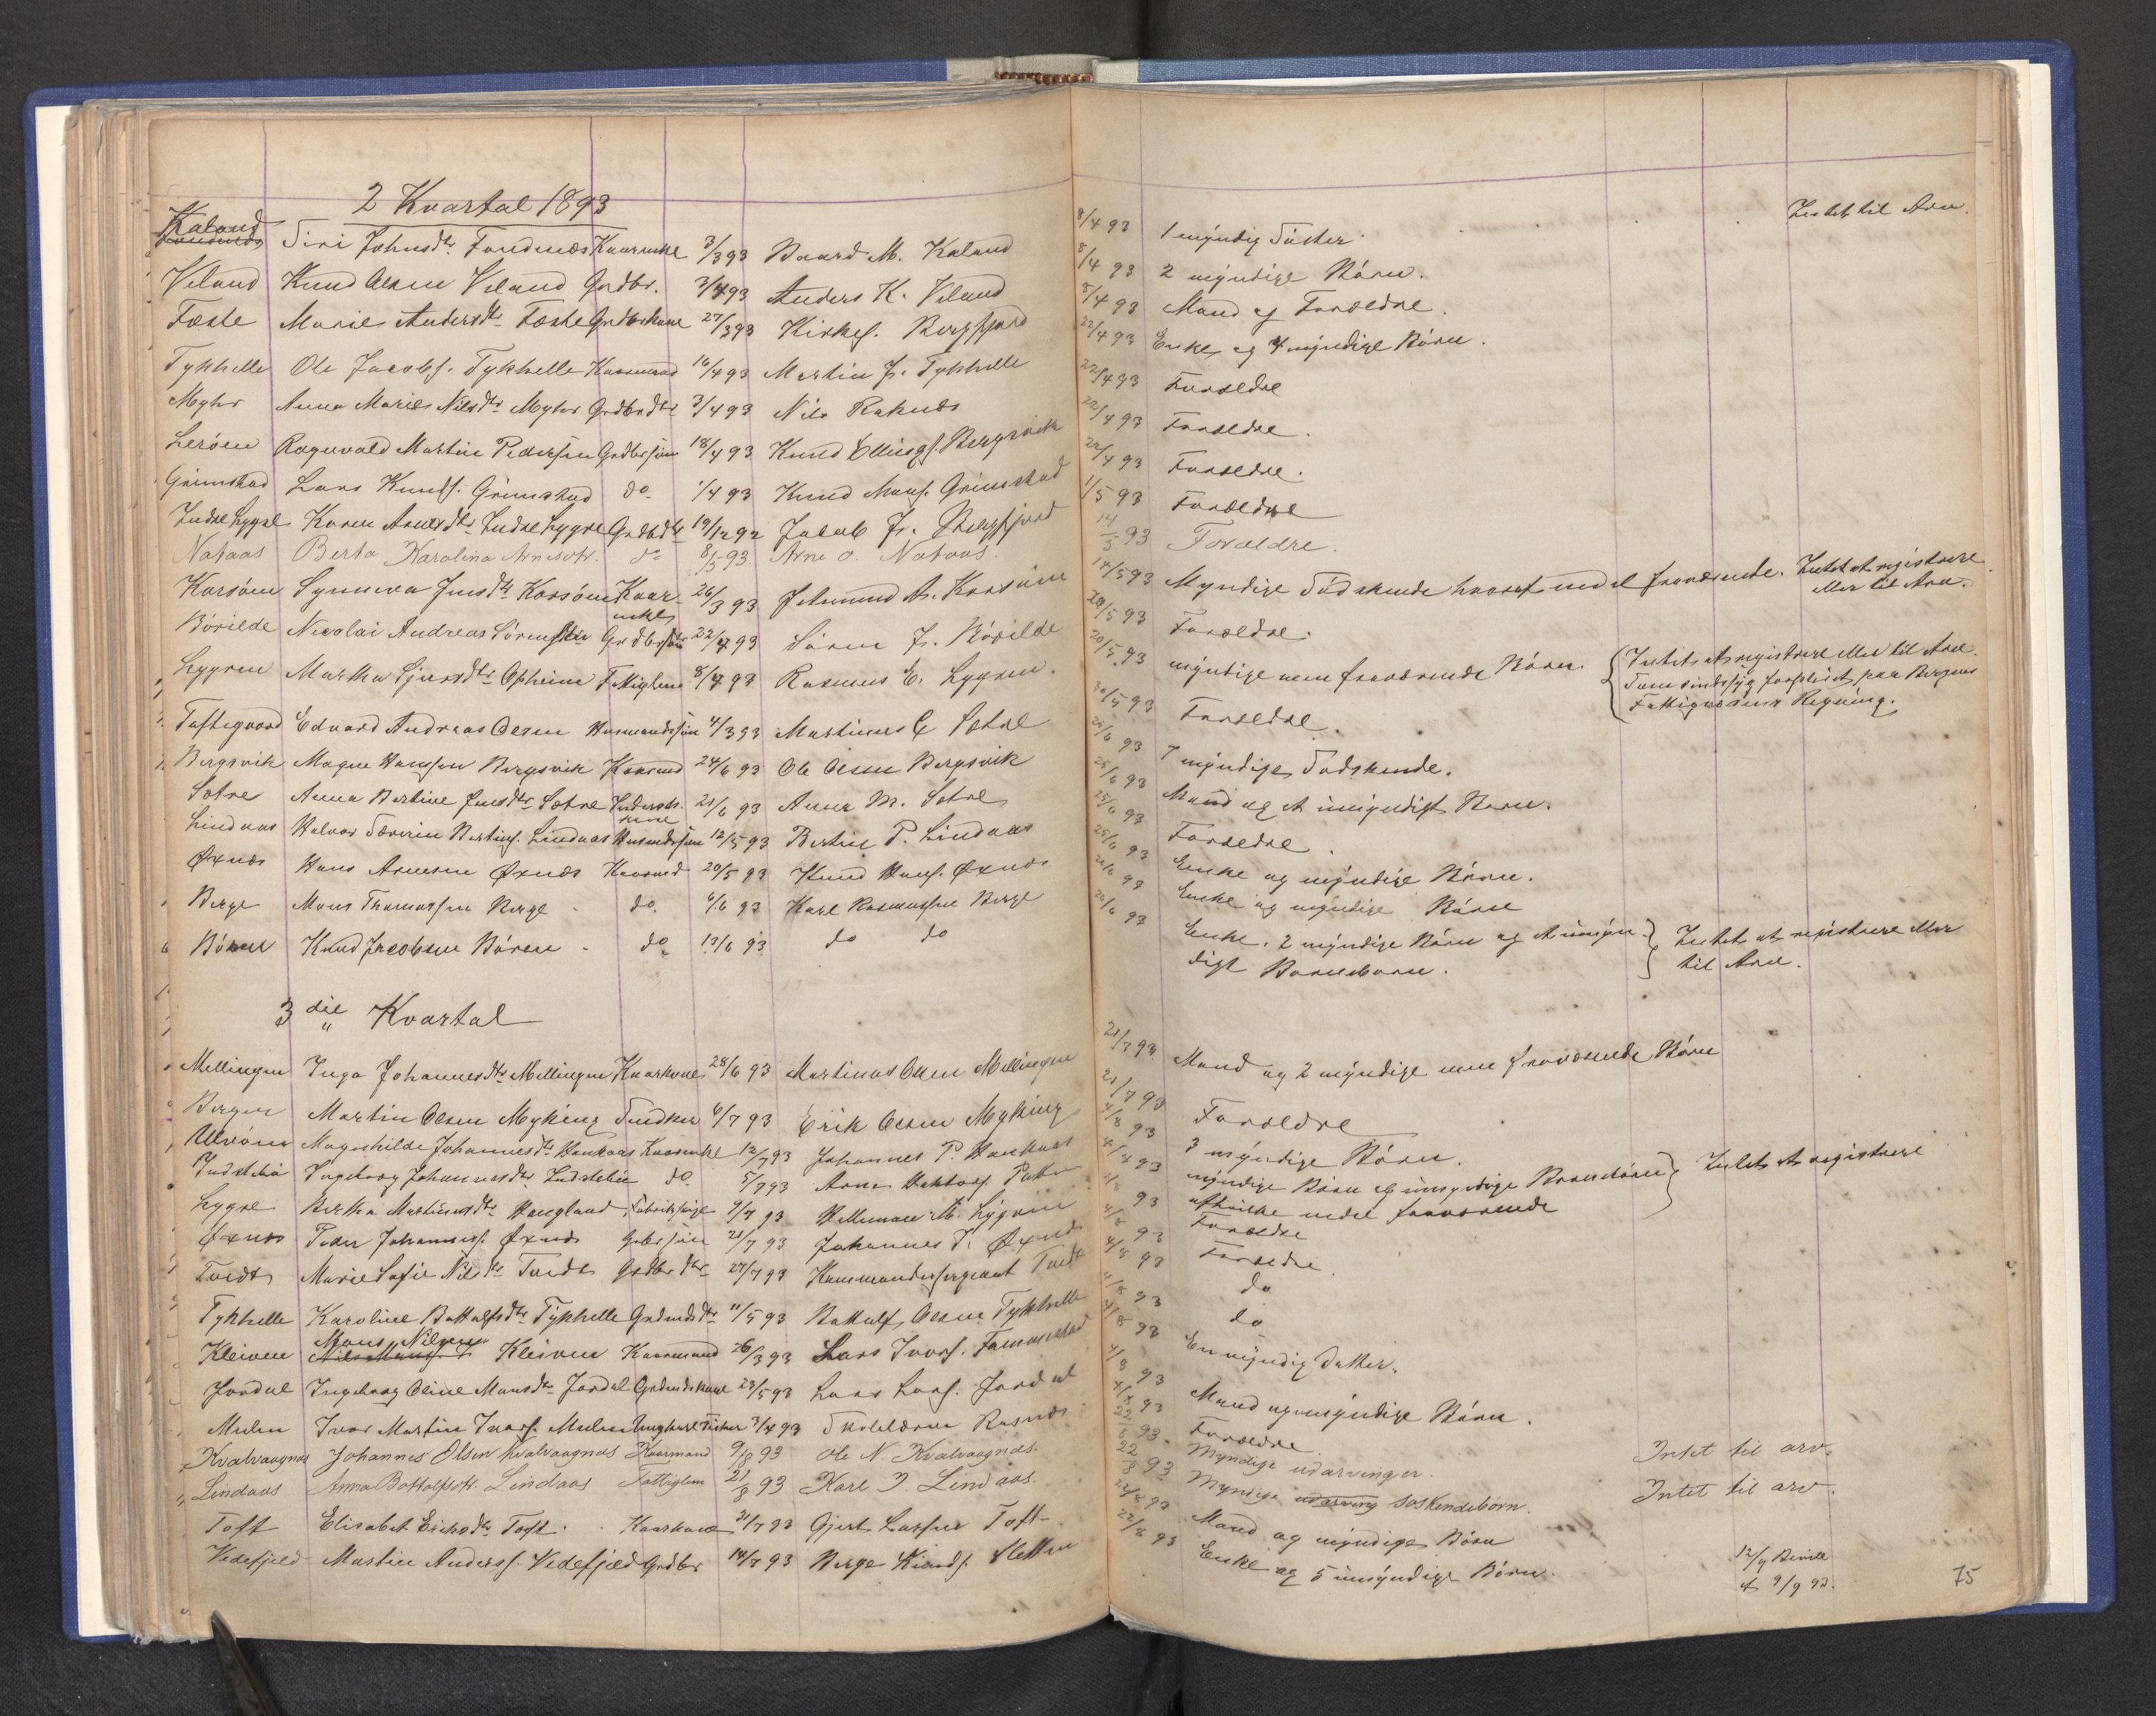 2 Kvartal 1893
Kaland
Siri Johnsdtr. Fondnæs Kaarenke 3/3 93 Baard M. Kaland 8/4 93 1 myndig Søster. Intet til Arv.
Veland Knud Olsen Veland Grdbr. 3/4 93 Anders K. Veland 8/4 93 2 myndige Børn.
Fæste Marie Andersdtr. Fæste Grdbrkone 27/3 93 Kirkes. Bergfjord 8/4 93 Mand og Forældre.
Tykhelle Ole Jacobs. Tykhelle Kaarmand 16/4 93 Martin J. Tykhelle 22/4 93 Enke og 4 myndige Børn.
Myhr Anna Marie Nilsdtr Myhr Grdbrdtr 3/4 93 Nils Raknes 22/4 93 Forældre
Lerøen Ragnvald Martin Pedersen Grdbrsøn 18/4 93 Knud Ellings. Bergsvik 22/4 93 Forældre.
Grimstad Lars Knuds. Grimstad do. 1/4 93 Knud Mons. Grimstad 22/4 93 Forældre.
Indre Lygre Karen Arnesdtr. Indre Lygre Grdbdtr 19/12 92 Jakob Js. Bergfjord 1/5 93 Forældre
Nataas Berta Karolina Arnesdtr. do 8/5 93 Arne O. Nataas. 14/5 93 Forældre.
Korsøen Synneva Jensdtr. Korsøen Kaarenke 26/3 93 A. Korsøen 14/5 93 Myndige Sødskende hvoraf en del fraværende. Intet at registrere eller til Arv.
Børilde Nicolai Andreas Sørensen Grdbrsøn 22/4 93 Søren J. Børilde 20/5 93 Forældre.
Lygren Martha Sjursdtr. Opheim F. 8/4 93 Rasmus E. Lygren. 20/5 93 myndige men fraværende Børn. Intet at registrere eller til Arv.
Som sindssyg forpleiet paa Bergens
Fattigvæsens Regning.
Toftegaard Edvard Andreas Olsen Husmandssøn 4/3 93 Martinus E Sætre 30/5 93 Forældre.
Bergsvik Magne Hanssen Bergsvik Kaarmd 24/6 93 Ole Olsen Bergsvik 25/6 93 7 myndige Sødskende.
Sætre Anna Bertine Jensdtr. Sætre kone 21/6 93 M. Sætre 25/6 93 Mand og et umyndigt Barn.
Lindaas Halvor Severin Bertins. Lindaas Husmdssøn 12/5 93 Bertin P. Lindaas 25/6 93 Forældre.
Øxnes Hans Arnesen Øxnes Kaarmd 20/5 93 Knud Hans. Øxnes 25/6 93 Enke og myndige Børn.
Berge Mons Thomassen Berge do. 4/6 93 Karl Rasmussen Berge 26/6 93 Enke og myndige Børn
Børen Knud Jacobsen Børen do 13/6 93 do do 26/6 93 Enke, 2 myndige Børn og et umyndigt Barnebarn. Intet at registrere eller til Arv.
3die Kvartal
Mellingen Inga Johannesdtr Mellingen Kaarkone 28/6 93 Martinus Olsen Mellingen 21/7 93 Mand og 2 myndige men fraværende Børn
Bergen Martin Olsen Myking Snedker 6/7 93 Erik Olsen Myking 21/7 93 Forældre
Ulvøen Magnhilde Johannesdtr. Haukaas Kaarenke 12/7 93 Johannes P. Haukaas 4/8 93 3 myndige Børn.
Indstebø Ingeborg Johannesdtr. Indstebø do. 5/7 93 Arne 4/8 93 myndige Børn og umyndige Barnebørn
hvilke endel fraværende Intet at registrere
Lygre Bertha Martinusdtr. Haugland, Fabrikpige 4/7 93 M. Lygren 4/8 93 Forældre
Øxnes Peder Johanness. Øxnes Grdbrsøn 21/7 93 Johannes T. Øxnes 4/8 93 Forældre.
Tvedt Marie Sofie Nilsdtr Tvedt Grdbrdtr 27/7 93 Kommandersergeant Tvedt 4/8 93 do
Tykhelle Karoline Bottolfsdtr. Tykhelle Grdmdsdtr. 11/5 93 Bottolf Olsen Tykhelle 4/8 93 do
Kleiven Mons Nilsen Kleiven Kaarmand 26/3 93 Lars Ivars. Fammestad 4/8 93 En myndig Datter.
Jordal Ingeborg Oline Monsdtr. Jordal Grdmdskone 23/5 93 Lars Lars. Jordal 4/8 93 Mand og umyndige Børn.
Mulen Ivar Martin Ivars. Mulen Ungkarl Fisker 3/4 93 Skolelærer Rasnes 4/8 93 Forældre.
Kvalvaagnes Johannes Olsen Kvalvaagnes Kaarmand 9/8 93 Ole N. Kvalvaagnes. 22/8 93 Myndige udarvinger. Intet til arv.
Lindaas Anna Bottolfsdtr. Lindaas Fattiglem 21/8 93 Karl J. Lindaas. 22/8 93 Myndige udarving søskendebørn. Intet til arv.
Toft Elisabet Eriksdtr Toft. Kaarkone 31/7 93 Gjert Larsen Toft 22/8 93 Mand og myndige Børn
Vedefjeld Martin Anders. Vedefjeld Grdbr 14/7 93 Berge Sletten 22/8 93 Enke og 5 umyndige Børn. 12/9 Bevill
af 9/9 93.
75